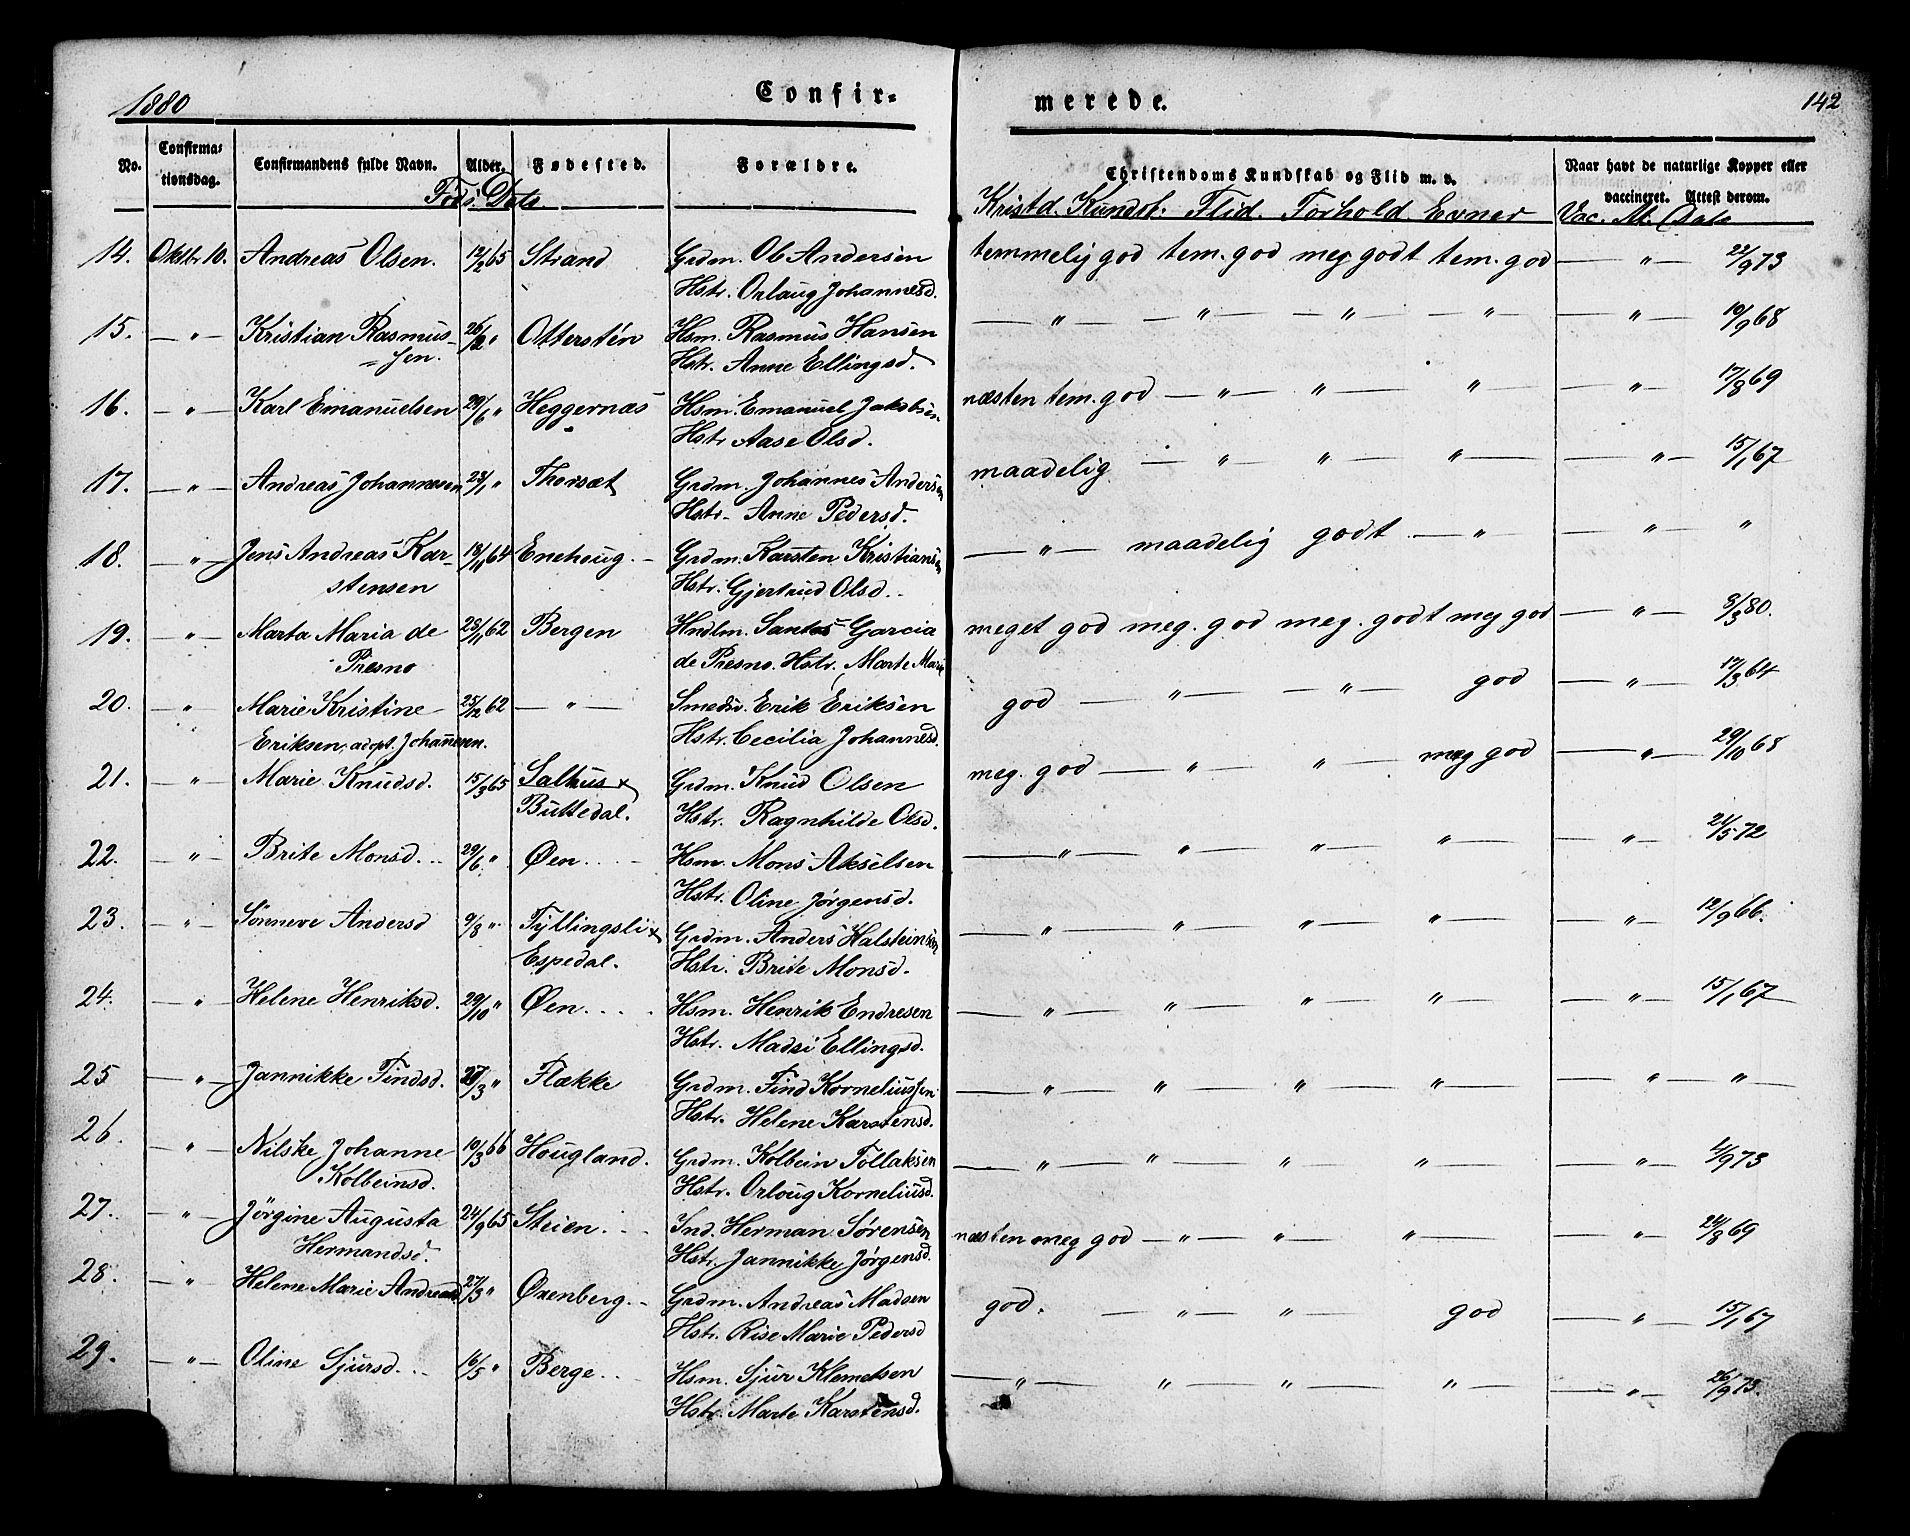 1880 Confir- merede. 142
No. Confirma- tionsdag. Confirmandens fulde Navn. Alder. Fødested. Forældre. Christendoms Kundskab og Flid m. v. Naar havt de naturlige Kopper eller vaccineret. Attest derom.
Føds. Dato Kristd. Kundsk. Flid. Forhold Evner Vac. At. Dato
14. Oktbr 10. Andreas Olsen. 12/2 65 Strand Grdm. Ole Andersen temmelig god tem. god meg godt tem. god — „ — 22/9 73
Hstr. Orlaug Johannesd.
15. — „ — Kristian Rasmus- 26/2 „ Otterstén Hsm. Rasmus Hansen — „ — — „ — — „ — — „ — — „ — 10/9 68
sen. Hstr. Anne Ellingsd.
16. — „ — Karl Emanuelsen 29/6 „ Heggernæs Hsm. Emanuel Jakobsen næsten tem. god — „ — „ — „ — „ — 17/8 69
Hstr Aase Olsd.
17. — „ — Andreas Johannesen 23/1 „ Thorsæt Grdm. Johannes Andersen maadelig — „ — „ — „ — — „ — 15/1 67
Hstr. Anne Pedersd.
18. „ — Jens Andreas Kar- 18/11 64 Enehoug. Grdm. Karsten Kristiansen — „ — maadelig godt — „ — — „ — „
stensen Hstr. Gjertrud Olsd.
19. — „ — Marta Maria de 28/1 62 Bergen Hndlm. Santos Garcia meget god meg. god meg. godt meg god — „ — 8/3 80.
Presno de Presno. Hstr. Marte Marie
20. — „ — Marie Kristine 25/12 62 — „ — Smedsv. Erik Eriksen god — „ — — „ — god — „ — 17/3 64
Eriksen, adopt. Johannesen. Hstr. Cecilia Johannesd.
21. — „ — Marie Knudsd. 15/3 65 Salhus x Grdm. Knud Olsen meg. god — „ — „ — meg god — „ — 29/10 68
Buttedal. Hstr. Ragnhilde Olsd.
22. — „ — Brite Monsd. 29/6 „ Øen Hsm. Mons Akselsen — „ — „ — „ — „ — — „ — 21/5 72
Hstr. Oline Jørgensd.
23. — „ — Sønneve Andersd 9/8 „ Tyllingsli x Grdm. Anders Halsteinsen — „ — „ — „ — „ — — „ — 12/9 66.
Espedal. Hstr. Brite Monsd.
24. — „ — Helene Henriksd. 29/10 „ Øen Hsm. Henrik Endresen — „ — „ — „ — „ — — „ — 15/1 67
Hstr. Madsi Ellingsd.
25 — „ — Jannikke Findsd. 27/3 „ Flække Grdm. Find Korneliussen — „ — „ — „ — „ — — „ — „ —
Hstr. Helene Karstensd.
26. — „ — Nilske Johanne 10/3 66 Hougland. Grdm. Kolbein Tollaksen — „ — „ — „ — „ — — „ — 4/9 73
Kolbeinsd. Hstr. Orloug Korneliusd.
27. — „ — Jörgine Augusta 24/9 65 Steien Ind. Herman Sørensen næsten meg god — „ — „ — „ — — „ — 24/8 69
Hermandsd. Hstr. Jannikke Jørgensd.
28. — „ — Helene Marie Andreasd 27/3 „ Øxenberg. Grdm. Andreas Madsen god. — „ — „ — god — „ — 15/1 67
Hstr. Rise Marie Pedersd
29. — „ — Oline Sjursd. 16/5 „ Berge Hsm. Sjur Klemetsen — „ — „ — „ — „ — — „ — 26/9 73.
Hstr. Marte Karstensd.